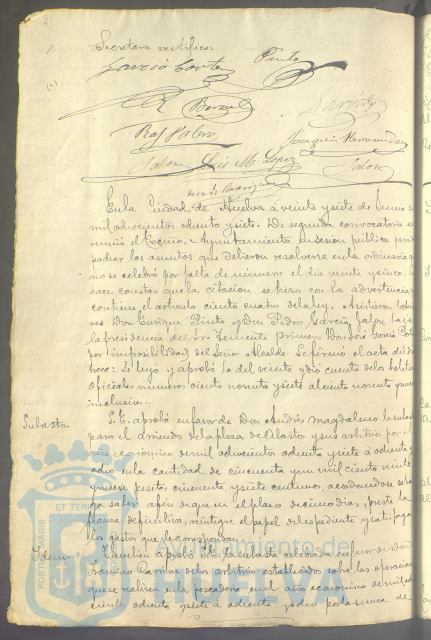 Secretario certifico.
García Cortes Pinto
Rafael
Joaquin Hernandez
Jalon Luis M. Lopez Jalon
En la Ciudad de Huelva á veinte y siete de Junio de
mil ochocientos ochenta y siete. De segunda convocatoria se
reunió el Excmo. Ayuntamiento en sesion pública para
los asuntos que debieron resolverse en la ordinaria
no se celebró por falta de número el dia veinte y cinco. Se
hace constar que la citacion se hizo con la advertencia
contiene el articulo ciento cuatro de la ley. Asistieron
res Don Enrique Pinto y Don Pedro García Jalon bajo
la presidencia del Sr. Teniente primero Don José García Cortes
por imposibilidad del Señor Alcalde. Se firmó el acta del
trece: Se leyó y aprobó la del veinte y dió cuenta de los Boletines
oficiales números ciento noventa y siete al ciento noventa y nueve
inclusive.
Subasta S.E. aprobó en favor de Don Andrés Magdaleno la subasta
para el arriendo de la plaza de Abasto y sus arbitrios por el
año económico de mil ochocientos ochenta y siete á ochenta y
ocho en la cantidad de cincuenta y un mil ciento veinte
y nueve pesetas cincuenta y siete centimos, acordandose se haga
saber afin de que en el plazo de diez dias, preste la
fianza definitiva, reintegre el papel del espediente y satisfaga
los gastos que le correspondan.
Idem Tambien aprobó S.E. la subasta celebrada en favor de Don
Francisco de los arbitrios establecidos sobre las operaciones
que se realicen en la pescaderia en el año económico de mil ocho
cientos ochenta y siete á ochenta y ocho por la suma de
PORTUS MARIS ET TERRAE
Ayuntamiento de
HUELVA